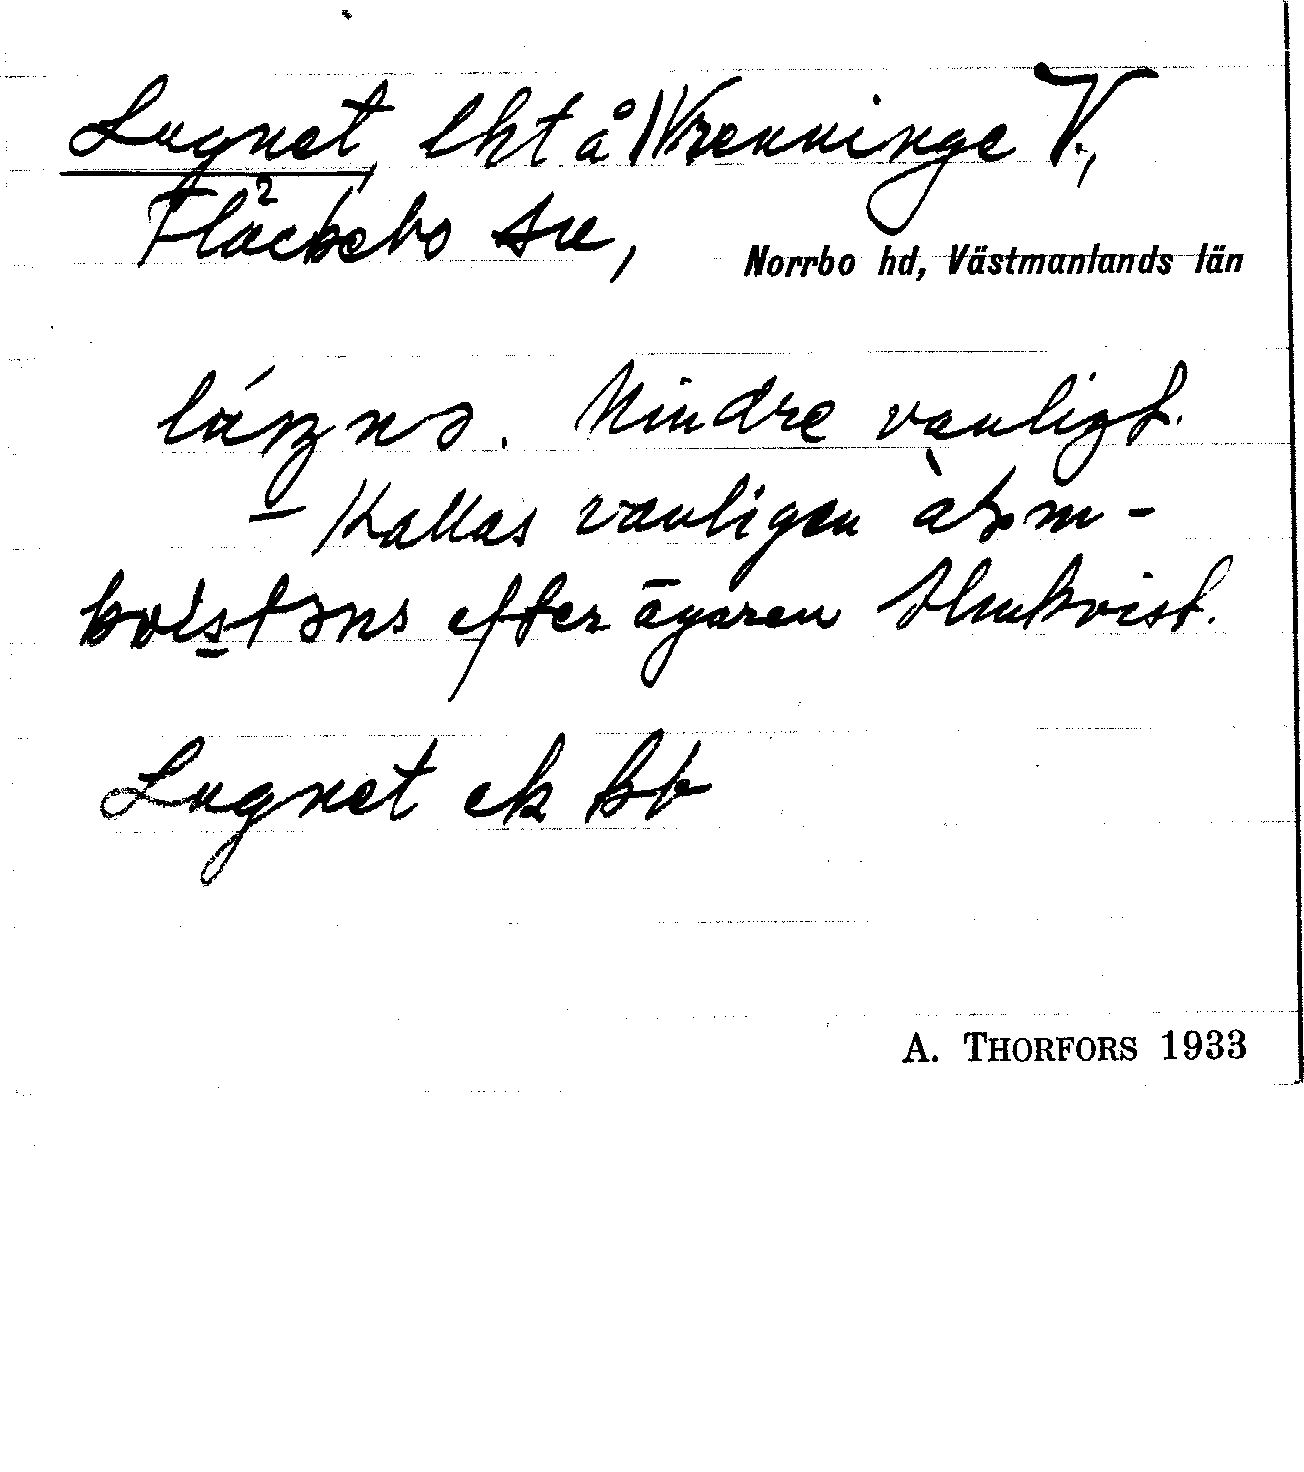 Lugnet, lht å Vrenninge V.,
Fläckebo sn,
Norrbo hd, Västmanlands län
Mindre vanligt.
– Kallas vanligen
efter ägaren Almkvist.
Lugnet ek bb
A. THORFORS 1933